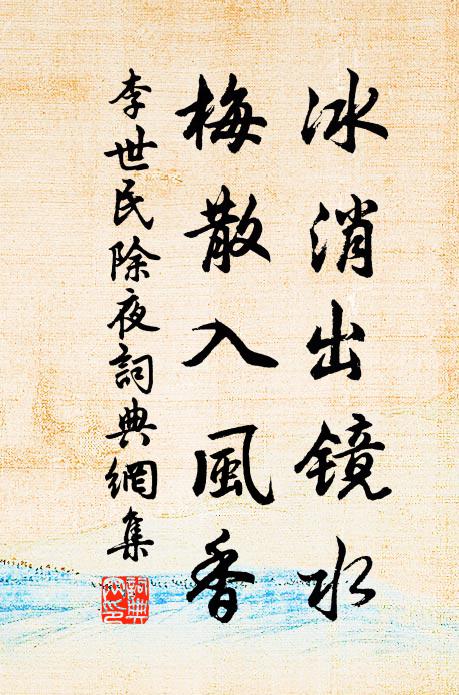 冰消出镜水
梅散入風香
李世民除夜詞典網集